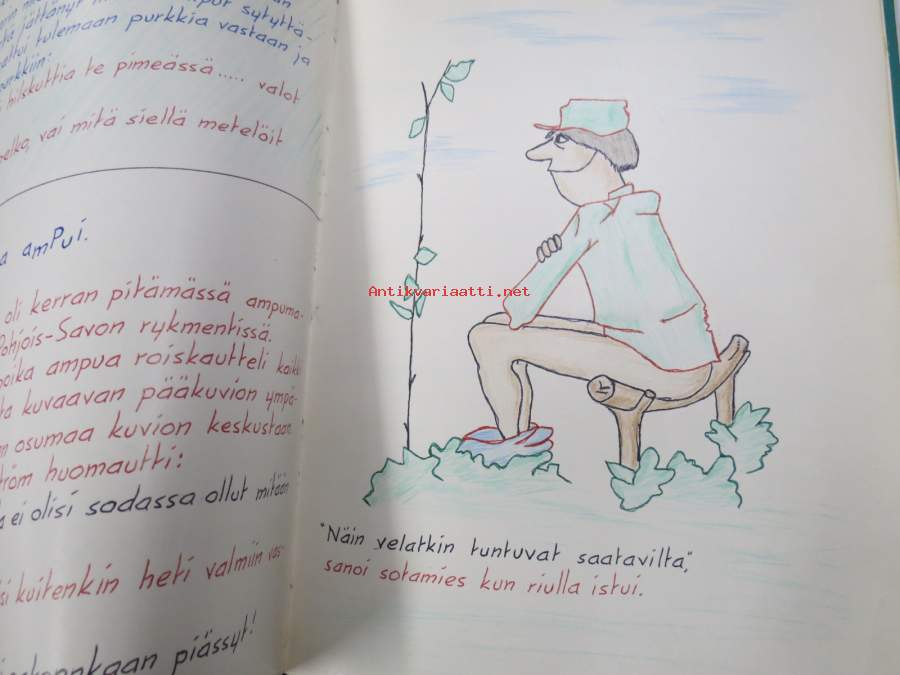 sytyttä-
jättänyt
tulemaan purkkia vastaan ja
purkkiin:
hilkkuttia te pimeässä..... valot
vai mitä siellä metelöit
amPui.
oli kerran pitämässä ampuma-
Pohjois-Savon rykmentissä.
poika ampua roiskautteli kaikki
kuvaavan pääkuvion ympä-
osumaa kuvion keskustaan
huomautti:
ei olisi sodassa ollut mitään
kuitenkin heti valmiin vas-
piässyt!
Antikvariaatti.net
"Näin velatkin tuntuvat saatavilta",
sanoi sotamies kun riulla istui.